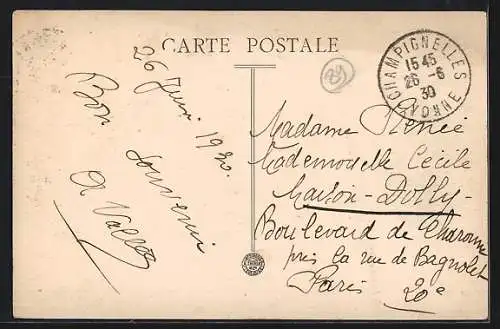 CARTE POSTALE
CHAMPIGNELLES
YONNE
1545
26-6
30
89
26 Juin 1930.
Bon souvenir
A Vallée
Madame Renée
Mademoiselle Cécile
Maison-Dolly-
Boulevard de Charonne
près la rue de Bagnolet
Paris 20e